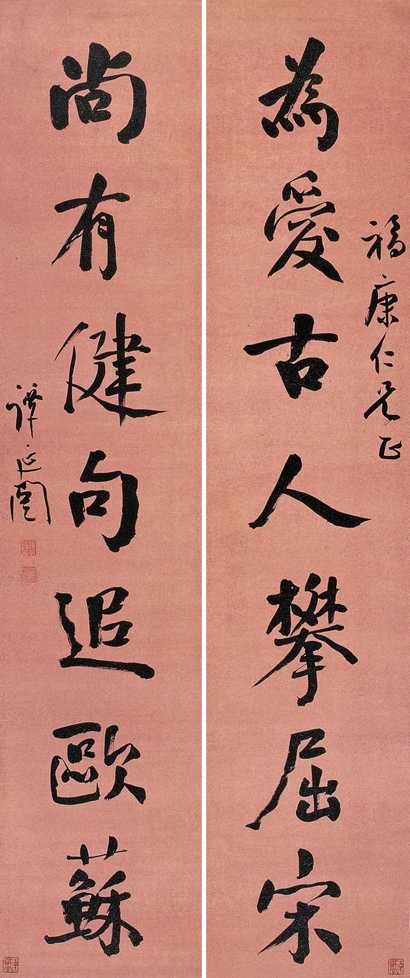 福康仁兄正
為愛古人攀屈宋
尚有健句追歐蘇
譚延闓